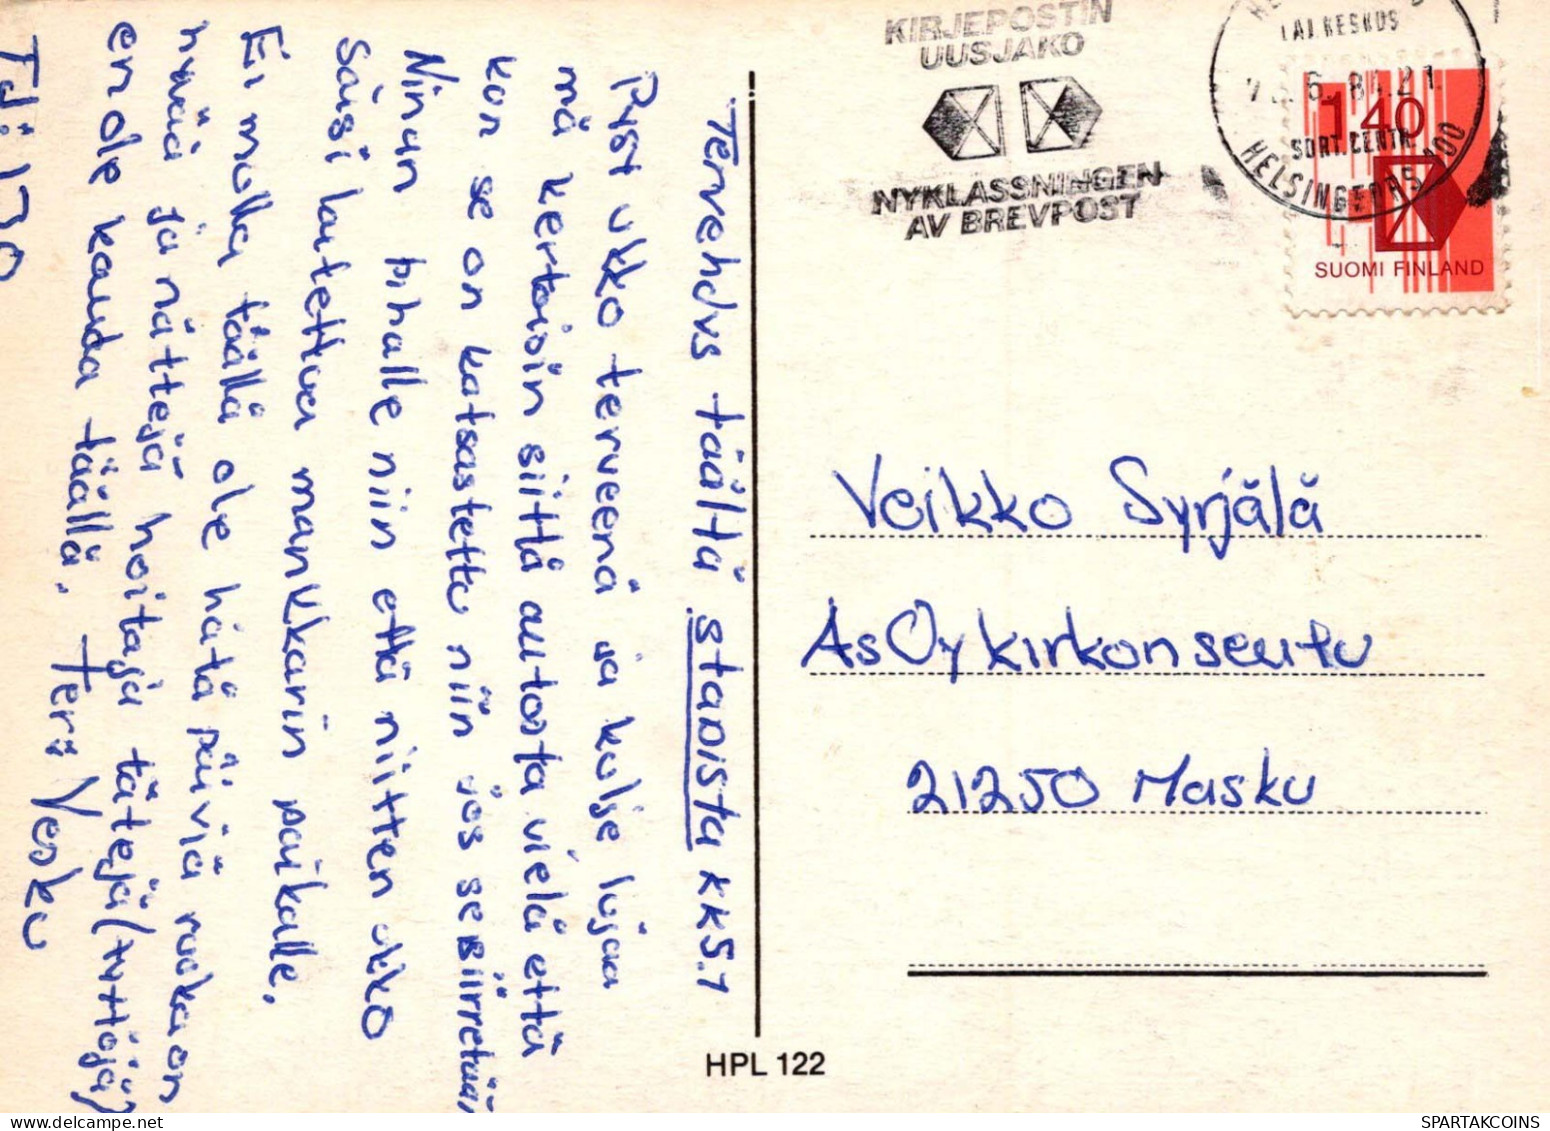 Tervehdys täältä STADISTA KKS.1
Pyst ukko terveenä ja kulje lujaa
mä kertoisin siittä autosta vielä että
kon se on katsastettu niin jos se siirretään
Ninan pihalle niin että niitten ukko
säisi lautettua mankkarin paikalle.
Ei mulla täällä ole hätä päiviä ruoka on
hyvää ja nättejä hoitaja tätejä (tyttöjä)
en ole kauda täällä. Ter: Vesku
KIRJEPOSTIN
UUSJAKO
NYKLASSNINGEN
AV BREVPOST
LAJ.KESKUS
SORT.CENTR.
HELSINGFORS
1,40
SUOMI FINLAND
Veikko Syrjälä
As Oy Kirkonseutu
21250 Masku
HPL 122
SPARTAKCOINS.COM